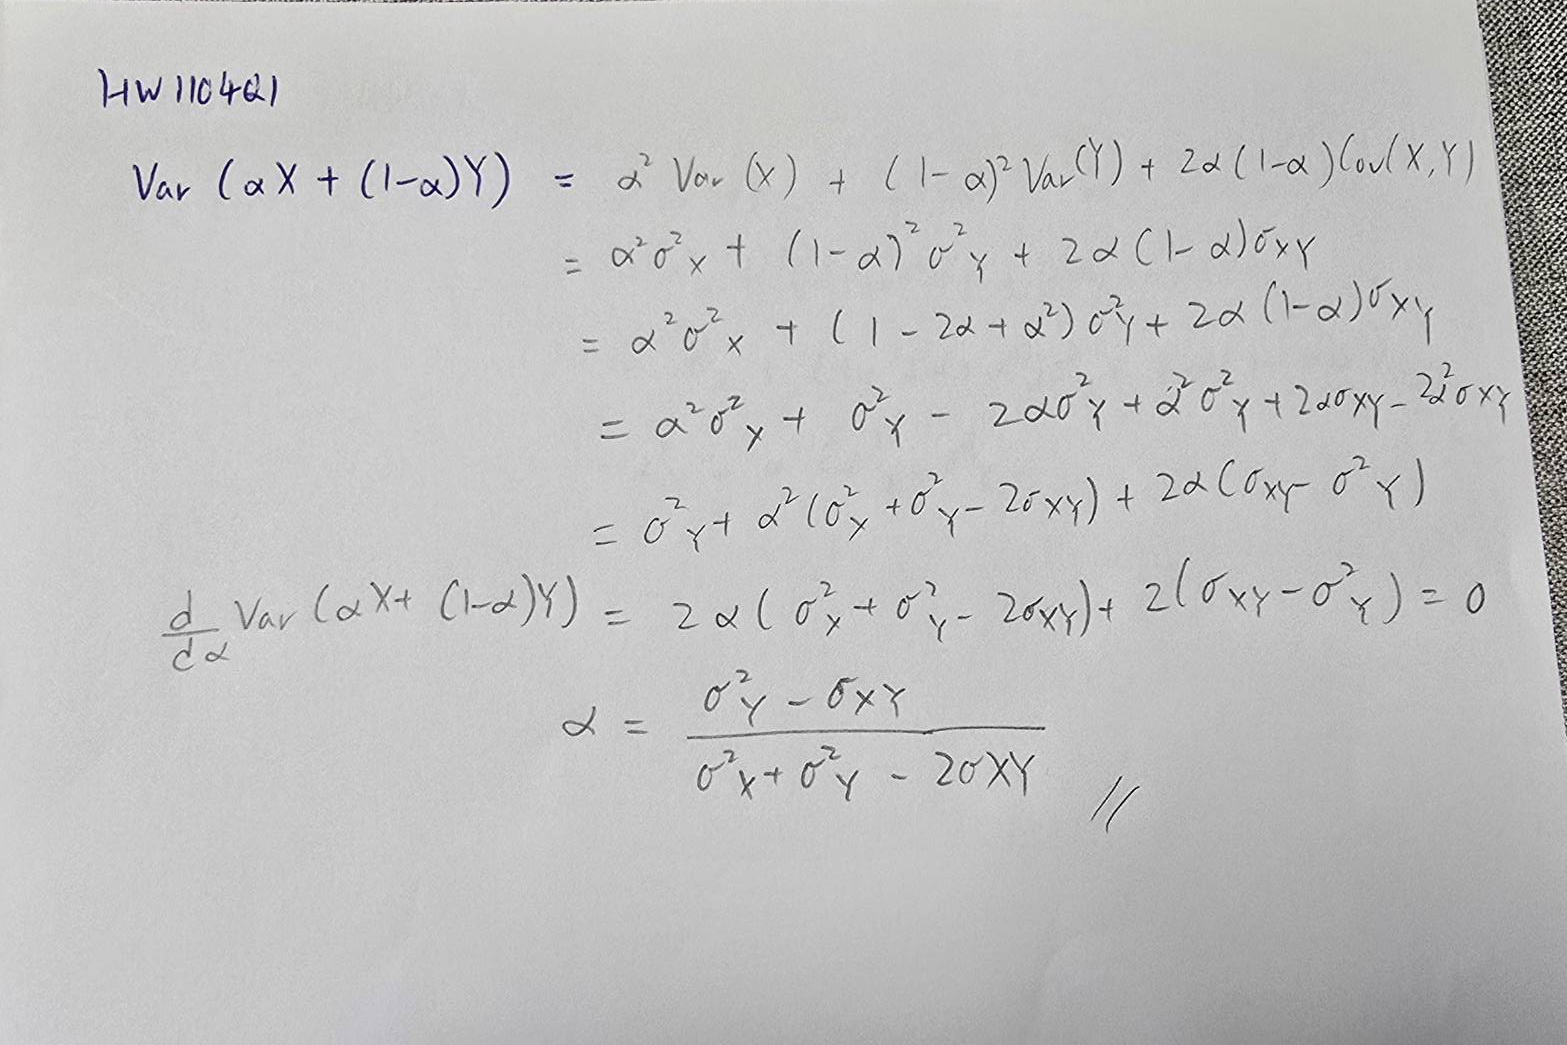 HW110421
Var (αX + (1-α)Y) = α² Var (X) + (1-α)² Var(Y) + 2α(1-α)Cov(X,Y)
= α²σ²x + (1-α)²σ²Y + 2α(1-α)σXY
= α²σ²x + (1-2α+α²)σ²Y + 2α(1-α)σXY
= α²σ²x + σ²Y - 2ασ²Y + α²σ²Y + 2ασXY - 2α²σXY
= σ²Y + α²(σ²x + σ²Y - 2σXY) + 2α(σXY - σ²Y)
d/dα Var (αX + (1-α)Y) = 2α(σ²x + σ²Y - 2σXY) + 2(σXY - σ²Y) = 0
σ²Y - σXY
α =
σ²X + σ²Y - 2σXY //